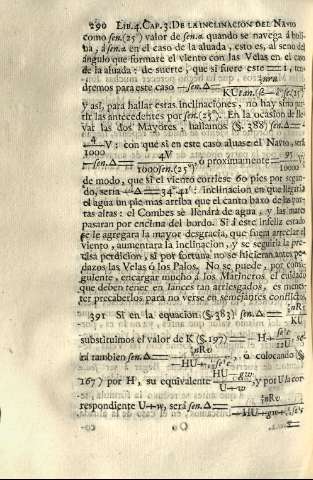 290 LIB.4.CAP.3.DE LA INCLINACION DEL NAVIO
como sen.(25°) valor de sen.α quando se navega á boli-
na, á sen.α en el caso de la aluada, esto es, al seno del
ángulo que formare el viento con las Velas en el caso
de la aluada: de suerte, que si fuere este = 1, ten-
dremos para este caso
y así, para hallar estas inclinaciones, no hay sino par-
tir las antecedentes por sen.(25°). En la ocasion de lle-
var las dos Mayores, hallamos (§. 388) sen.Δ =
4/1000 V: con que si en este caso aluase el Navio, será
sen.Δ = 4V/1000sen.(25°) ó proximamente = 95/1000 V:
de modo, que si el viento corriese 60 pies por segun-
do, seria Δ = 34°.41': inclinacion en que llegaría
el agua un pie mas arriba que el canto baxo de las puer-
tas altas: el Combes se llenára de agua, y las mares
pasaran por encima del bordo. Si á este infeliz estado
se le agregara la mayor desgracia, que fuera arreciar el
viento, aumentara la inclinacion, y se seguiria la pre-
cisa perdicion, si por fortuna no se hicieran antes pe-
dazos las Velas ó los Palos. No se puede, por consi-
guiente, encargar mucho á los Marineros el cuidado
que deben tener en lances tan arriesgados, es menes-
ter precaberlos para no verse en semejantes conflictos.
391 Si en la equacion (§.383) sen.Δ =
substituimos el valor de K (§.197) = H +, se-
rá tambien sen.Δ =, ó colocando (§.
167) por H, su equivalente, y por U la cor-
respondiente U+w, será sen.Δ =
Oo